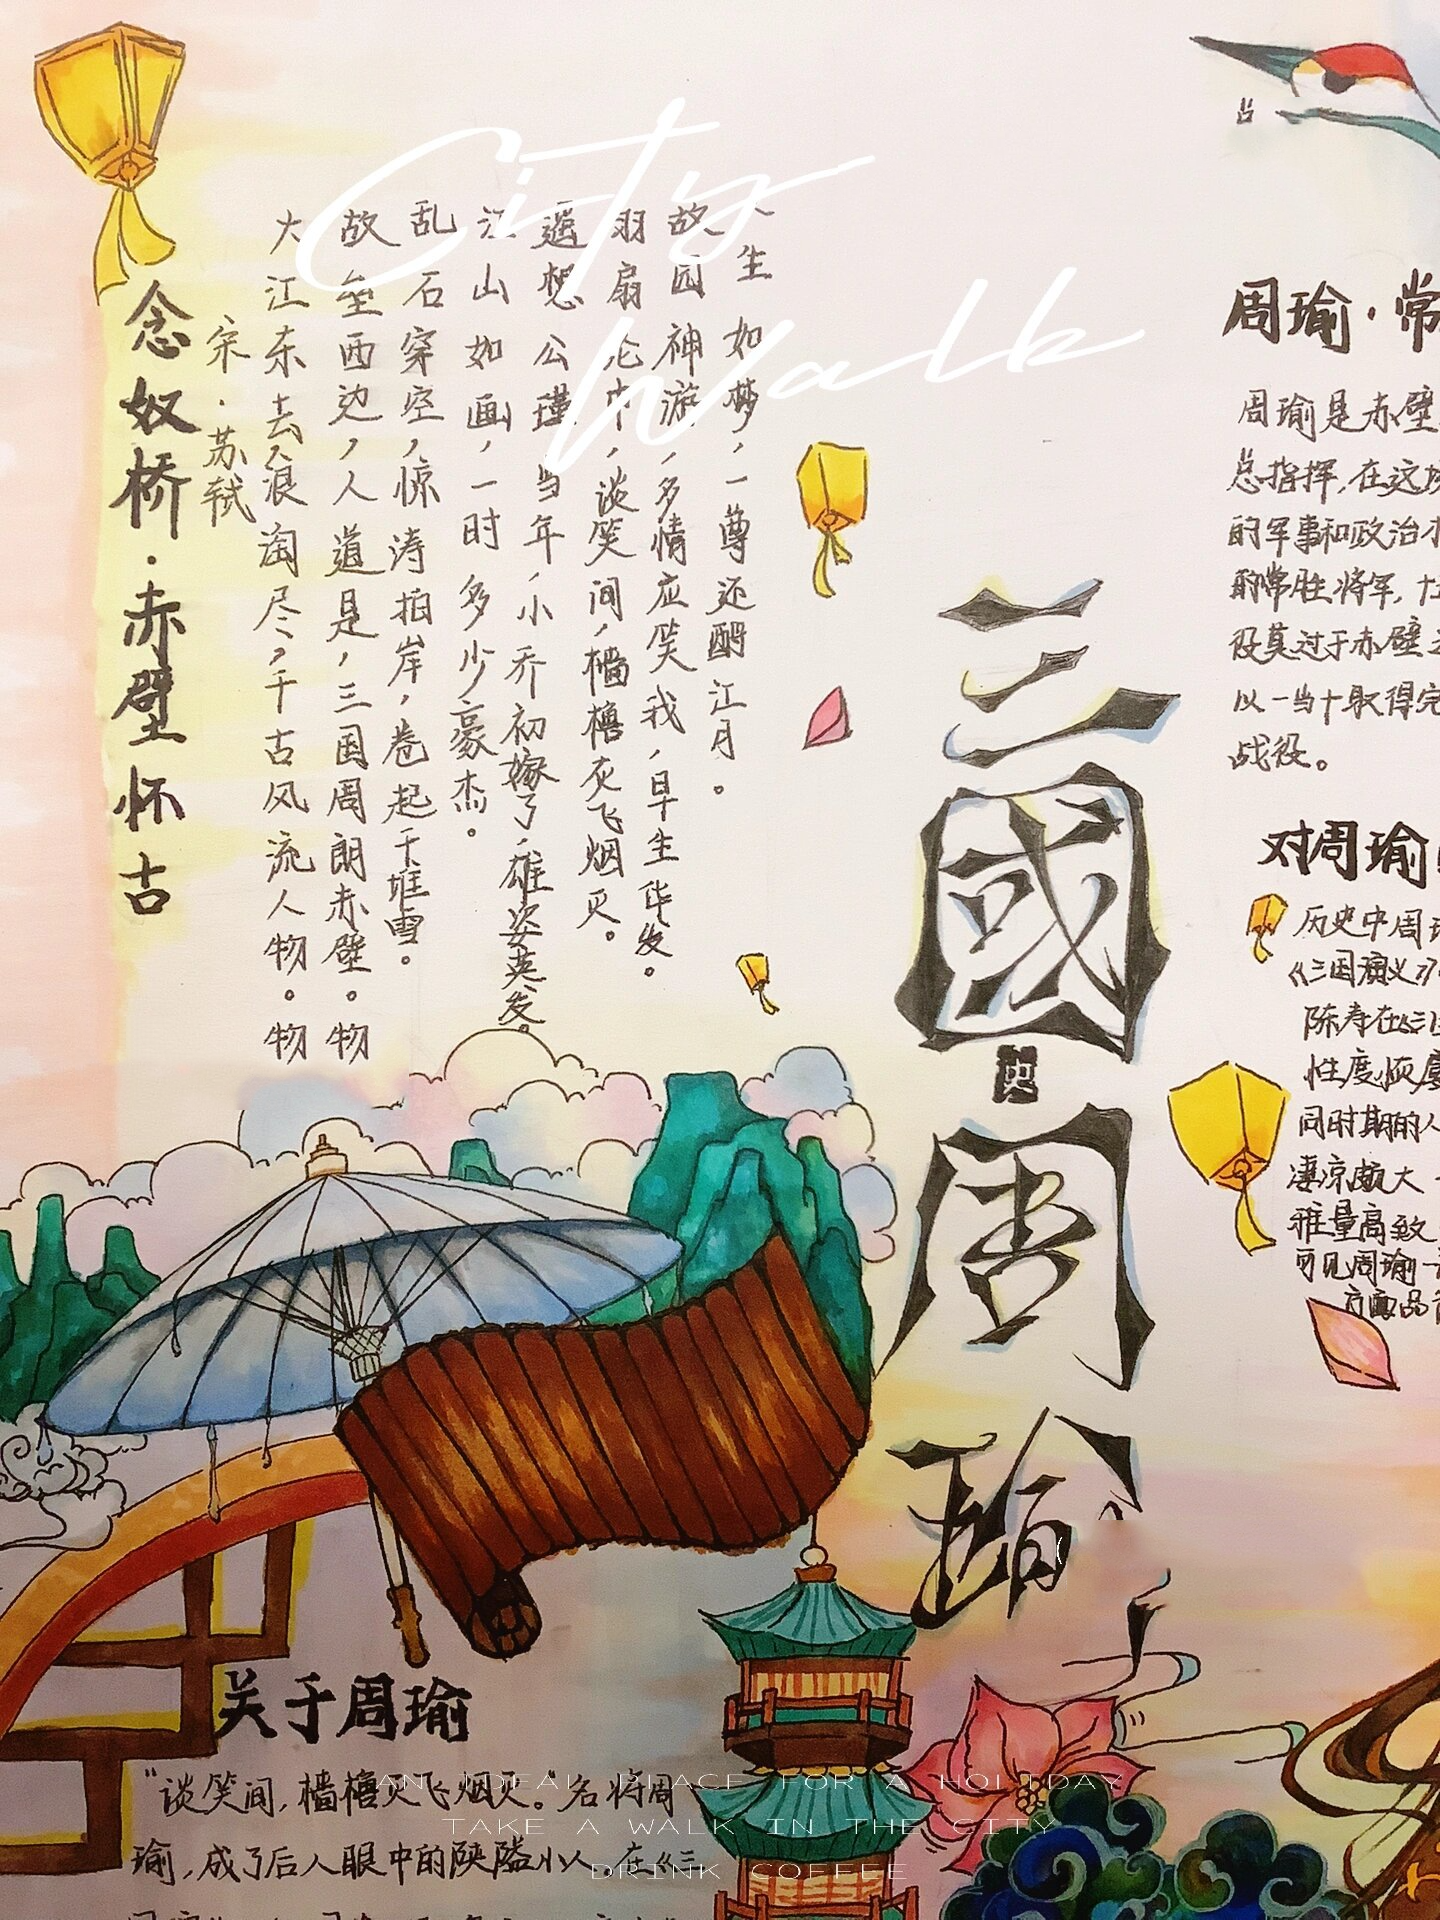 City
Walk
念奴桥·赤壁怀古
宋·苏轼
大江东去,浪淘尽,千古风流人物。物
故垒西边,人道是,三国周朗赤壁。物
乱石穿空,惊涛拍岸,卷起千堆雪。
江山如画,一时多少豪杰。
遥想公瑾当年,小乔初嫁了,雄姿英发。
羽扇纶巾,谈笑间,樯橹灰飞烟灭。
故园神游,多情应笑我,早生华发。
人生如梦,一尊还酹江月。
三國周瑜
周瑜·常
周瑜是赤壁
总指挥,在这
的军事和政治
的常胜将军,
役莫过于赤壁
以一当十取得完
战役。
对周瑜
历史中周
《三国演义》
陈寿在《三
性度恢廓
同时期的人
凄凉
雅量高致
可见周瑜一
方面品
关于周瑜
“谈笑间,樯橹灰飞烟灭。”名将周
瑜,成了后人眼中的狭隘小人。在《三
AN IDEAL PLACE FOR A HOLIDAY
TAKE A WALK IN THE CITY
DRINK COFFEE